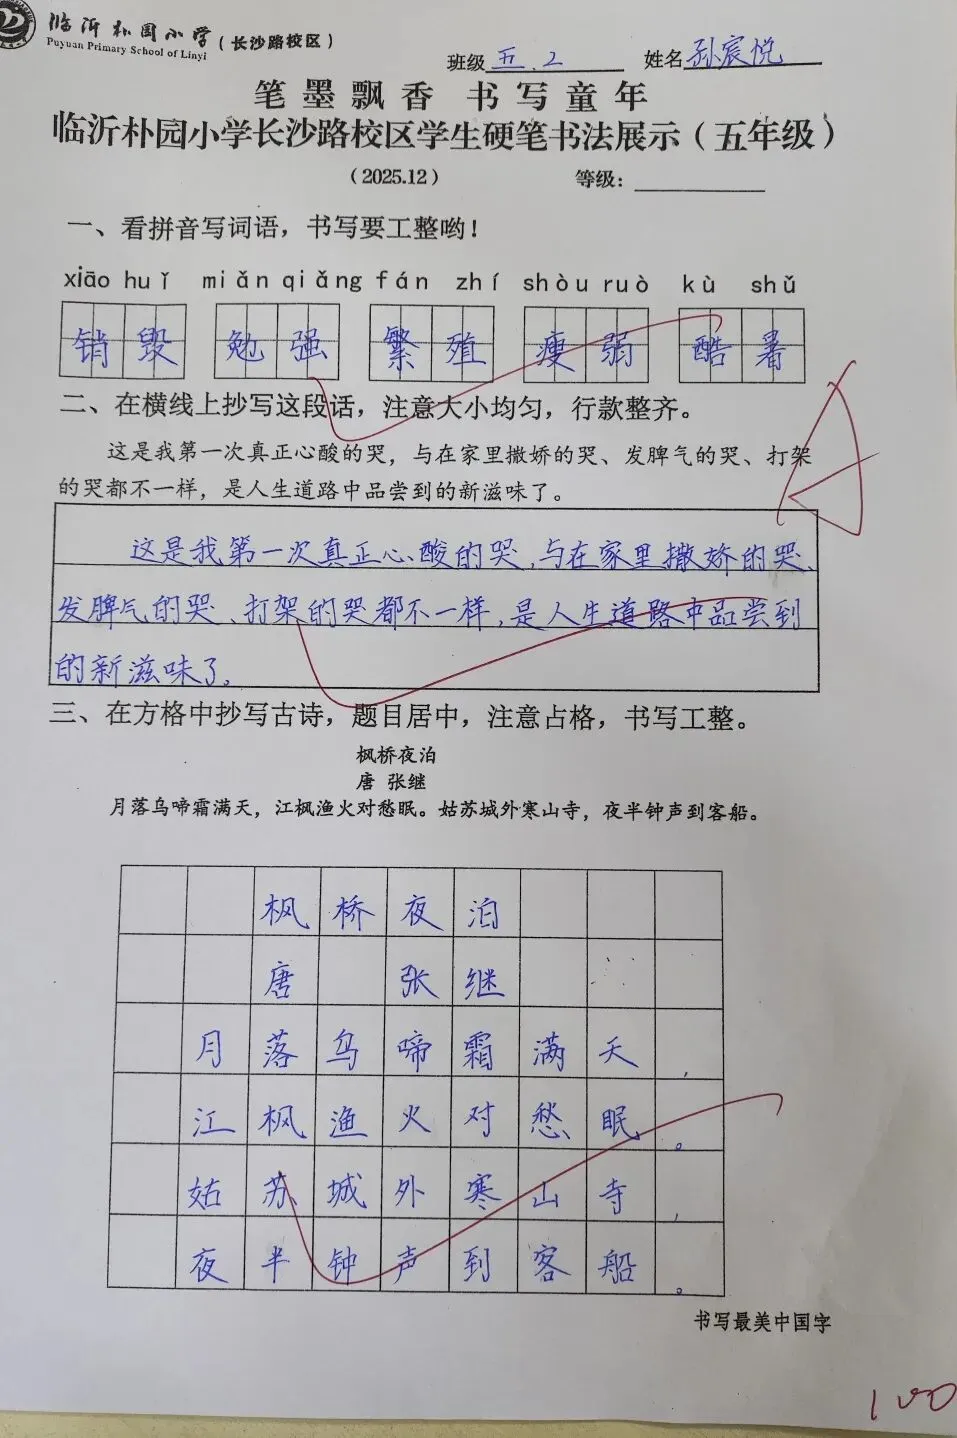 临沂朴园小学（长沙路校区）
Puyuan Primary School of Linyi
班级 五.2 姓名 孙宸悦
笔墨飘香 书写童年
临沂朴园小学长沙路校区学生硬笔书法展示（五年级）
（2025.12） 等级：
一、看拼音写词语，书写要工整哟！
xiāo huǐ miǎn qiǎng fán zhí shòu ruò kù shǔ
销毁 勉强 繁殖 瘦弱 酷暑
二、在横线上抄写这段话，注意大小均匀，行款整齐。
这是我第一次真正心酸的哭，与在家里撒娇的哭、发脾气的哭、打架
的哭都不一样，是人生道路中品尝到的新滋味了。
这是我第一次真正心酸的哭，与在家里撒娇的哭、
发脾气的哭、打架的哭都不一样，是人生道路中品尝到
的新滋味了。
三、在方格中抄写古诗，题目居中，注意占格，书写工整。
枫桥夜泊
唐 张继
月落乌啼霜满天，江枫渔火对愁眠。姑苏城外寒山寺，夜半钟声到客船。
枫桥夜泊
唐 张继
月落乌啼霜满天，
江枫渔火对愁眠。
姑苏城外寒山寺，
夜半钟声到客船。
书写最美中国字
100